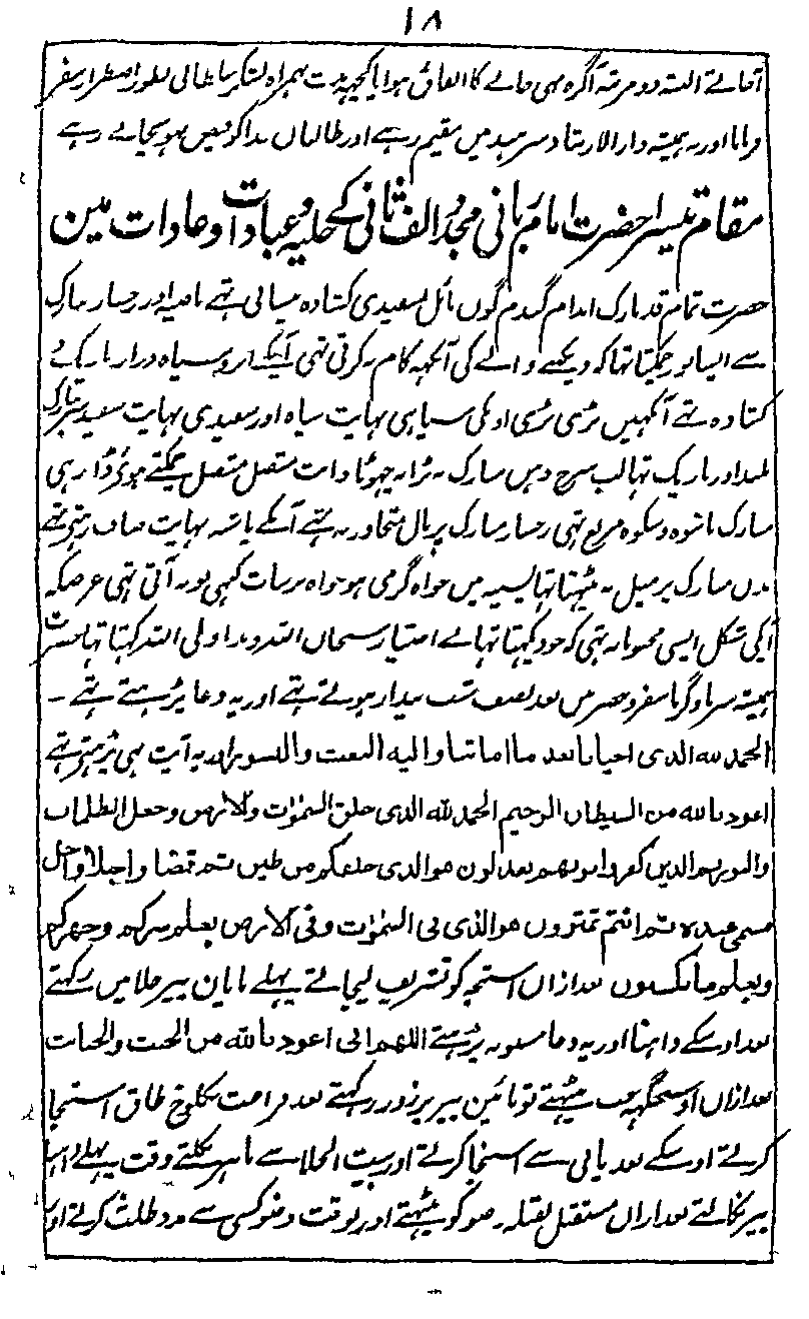 ١٨
آتے البتہ دو مرتبہ آگرہ بھی جانے کا اتفاق ہوا یا کچھہ مدت ہمراہ لشکر سلطانی بطور اضطرار سفر
فرمایا اور نہ ہمیشہ دار الارشاد سرہند میں مقیم رہے اور طالبان خدا کو فیض پہونچاتے رہے
مقام تیسرا حضرت امام ربانی مجدد الف ثانی کے حلیہ و عبادات و عادات مین
حضرت تمام قد نازک اندام گندم گوں مائل بسفیدی کشادہ پیشانی تہے ناصیہ اور رخسار مبارک
سے ایسا نور چمکتا تہا کہ دیکھنے والے کی آنکہہ کام نہ کرتی تہی آپکے ابرو سیاہ دراز باریک و
کشادہ تہے آنکہیں بڑی بڑی اونکی سیاہی نہایت سیاہ اور سفیدی نہایت سفید بینی مبارک
بلند اور باریک تہا لب سرخ دہن مبارک نہ بڑا نہ چہوٹا دانت متصل متصل چمکتے ہوئے ڈاڑہی
مبارک بانبوہ و شکوہ مربع تہی رخسار مبارک پر بال متجاوز نہ تہے آپکے پاشنہ نہایت صاف رہتے تہے
بدن مبارک پر میل نہ بیٹہتا تہا پسینہ میں خواہ گرمی ہو خواہ برسات کبہی بو نہ آتی تہی غرضکہ
آپکی شکل ایسی محبوبانہ تہی کہ جو دیکہتا تہا بے اختیار سبحان اللہ و ہذا ولی اللہ کہتا تہا حضرت
ہمیشہ سرما و گرما سفر و حضر میں بعد نصف شب بیدار ہوتے تہے اور یہ دعا پڑہتے تہے ۔
الحمد لله الذی احیانا بعد ما اماتنا و الیه البعث والنشور اور یہ آیت بہی پڑہتے تہے
اعوذ بالله من الشیطان الرجیم الحمد لله الذی خلق السمٰوٰت والارض وجعل الظلمات
والنور ثم الذین کفروا بربهم یعدلون هو الذی خلقکم من طین ثم قضا واجلا واجل
مسمی عنده ثم انتم تمترون هو الذی فی السمٰوٰت وفی الارض یعلم سرکم وجهرکم
ویعلم ما تکسبون بعد ازاں استنجہ کو تشریف لیجاتے پہلے بایان پیر خلا میں رکہتے
بعد اوسکے داہنا اور یہ دعا مسنونہ پڑہتے اللهم انی اعوذ بالله من الخبث والخبائث
بعد ازاں اوس جگہہ جب بیٹہتے تو بائیں پیر پر زور رکہتے بعد فراغت کلوخ طاق استنجا
کرتے اوسکے بعد پانی سے استنجا کرتے اور بیت الخلا سے باہر نکلتے وقت پہلے داہنا
پیر نکالتے بعد ازاں مستقبل بقبلہ وضو کو بیٹہتے اور بوقت وضو کسی سے مدد طلب نہ کرتے اور